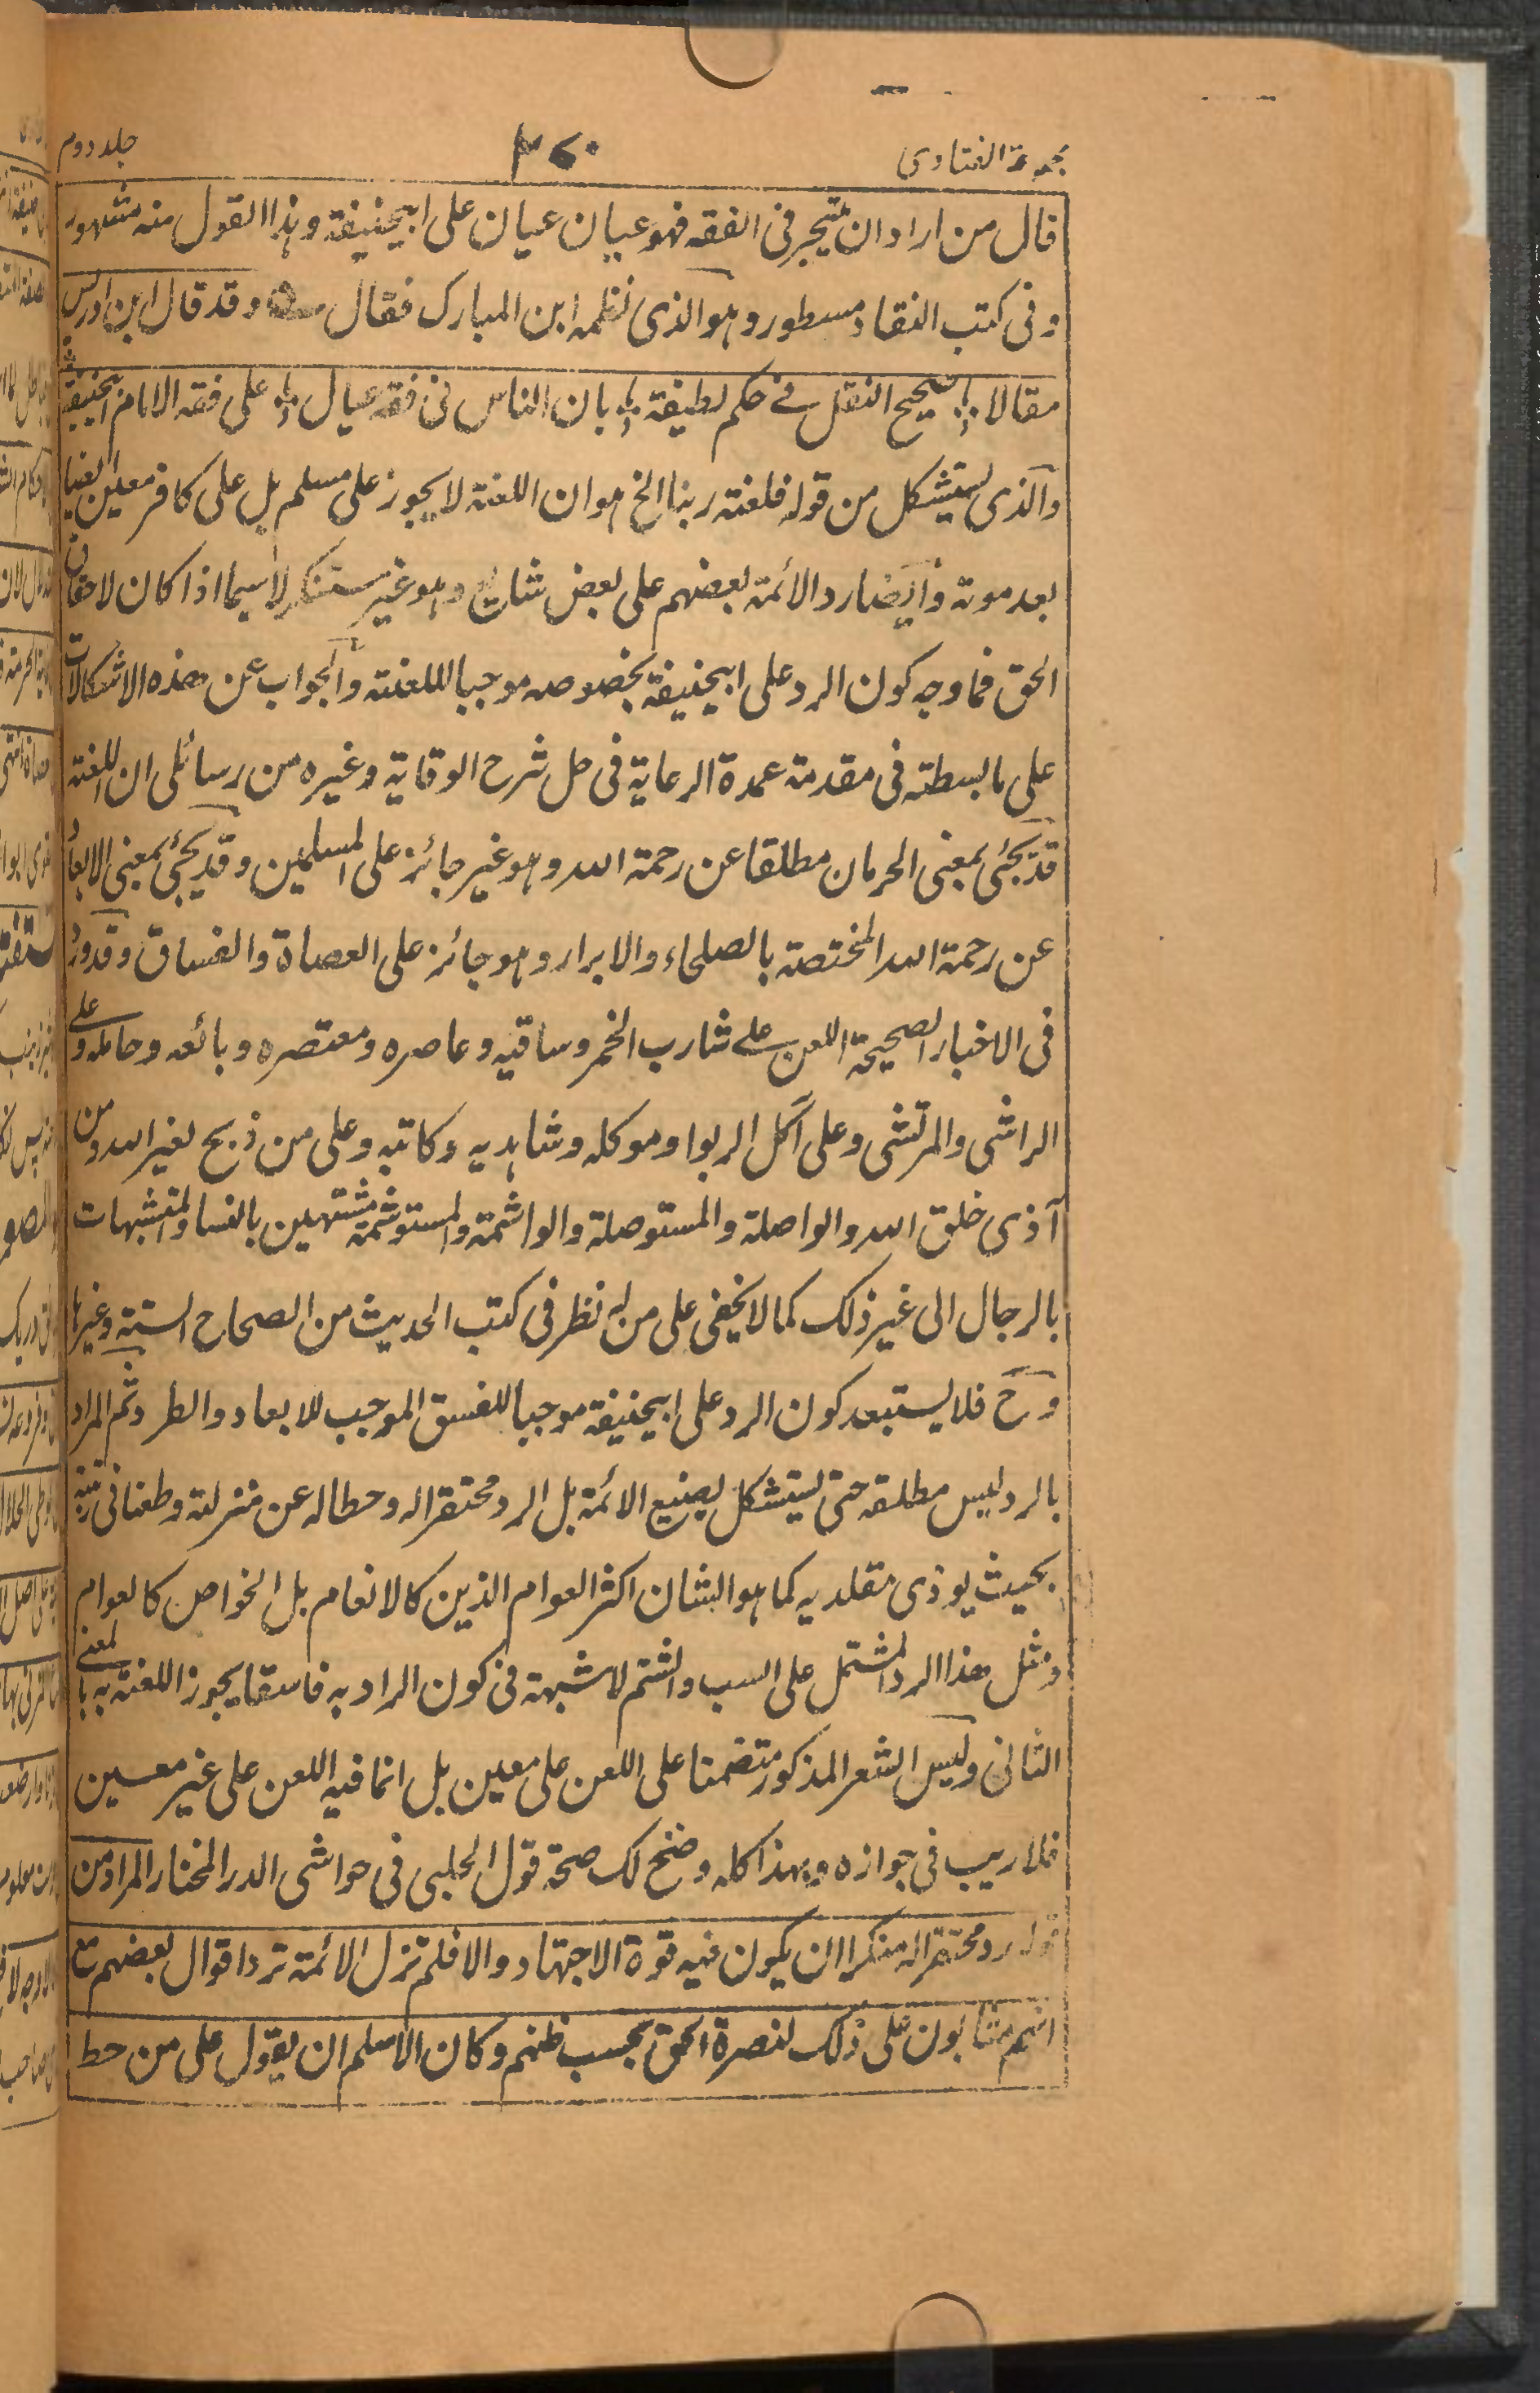 مجموعة الفتاوى ٣٦٠ جلد دوم
قال من اراد ان يتبحر فى الفقه فهو عيال على ابيحنيفة وہذا القول منه مشهور
و فى كتب النقاد مسطور وہو الذى نظمه ابن المبارك فقال وقد قال ابن ادريس
مقالا صحيح النقل فے حكم لطيفة بان الناس فى فقه عيال على فقه الامام ابيحنيفة
والذى يستشكل من قوله فلعنة ربنا الخ ہو ان اللعنة لا يجوز على مسلم بل على كافر معين ايضا
بعد موته وايضا رد الأئمة بعضهم على بعض شائع وہو غير مستنكر لا سيما اذا كان لاحقاق
الحق فما وجه كون الرد على ابيحنيفة بخصوصه موجبا للعنة والجواب عن هذه الاشكالات
على ما بسطته فى مقدمة عمدة الرعاية فى حل شرح الوقاية وغيره من رسائلى ان اللعنة
قد يجئ بمعنى الحرمان مطلقا عن رحمة الله وہو غير جائز على المسلمين وقد يجئ بمعنى الابعاد
عن رحمة الله المختصة بالصلحاء والابرار وہو جائز على العصاة والفساق وقد ورد
فى الاخبار الصحيحة اللعن علے شارب الخمر وساقيه وعاصره ومعتصره وبائعه وحامله وعلے
الراشى والمرتشى وعلى آكل الربوا وموكله وشاہديه وكاتبه وعلى من ذبح لغير الله ومن
آذى خلق الله والواصلة والمستوصلة والواشمة والمستوشمة مشتبهين بالنسا والمتشبهات
بالرجال الى غير ذلك كما لا يخفى على من له نظر فى كتب الحديث من الصحاح الستة وغيرہا
وح فلا يستبعد كون الرد على ابيحنيفة موجبا للفسق الموجب للابعاد والطرد ثم المراد
بالرد ليس مطلقه حتى يستشكل بصنيع الائمة بل الرد محتقرا له وحطا له عن منزلته وطعنا فى رتبته
بحيث يوذى مقلديه كما ہو الشان اكثر العوام الذين كالانعام بل الخواص كالعوام
ومثل هذا الرد المشتمل على السب والشتم لا شبهة فى كون الراد به فاسقا يجوز اللعنة به بالمعنے
الثانى وليس الشعر المذكور متضمنا على اللعن على معين بل انما فيه اللعن على غير معين
فلا ريب فى جوازه وبهذا كله وضح لك صحة قول الحلبى فى حواشى الدر المختار المراد من
قوله رد محتقرا له منكرا ان يكون فيه قوة الاجتهاد والا فلم تزل الائمة ترد اقوال بعضهم مع
انهم مثابون على ذلك لنصرة الحق بحسب ظنهم وكان الاسلم ان يقول على من حط